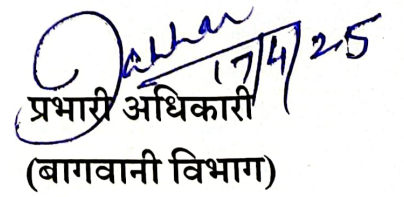 17/4/25
प्रभारी अधिकारी
(बागवानी विभाग)